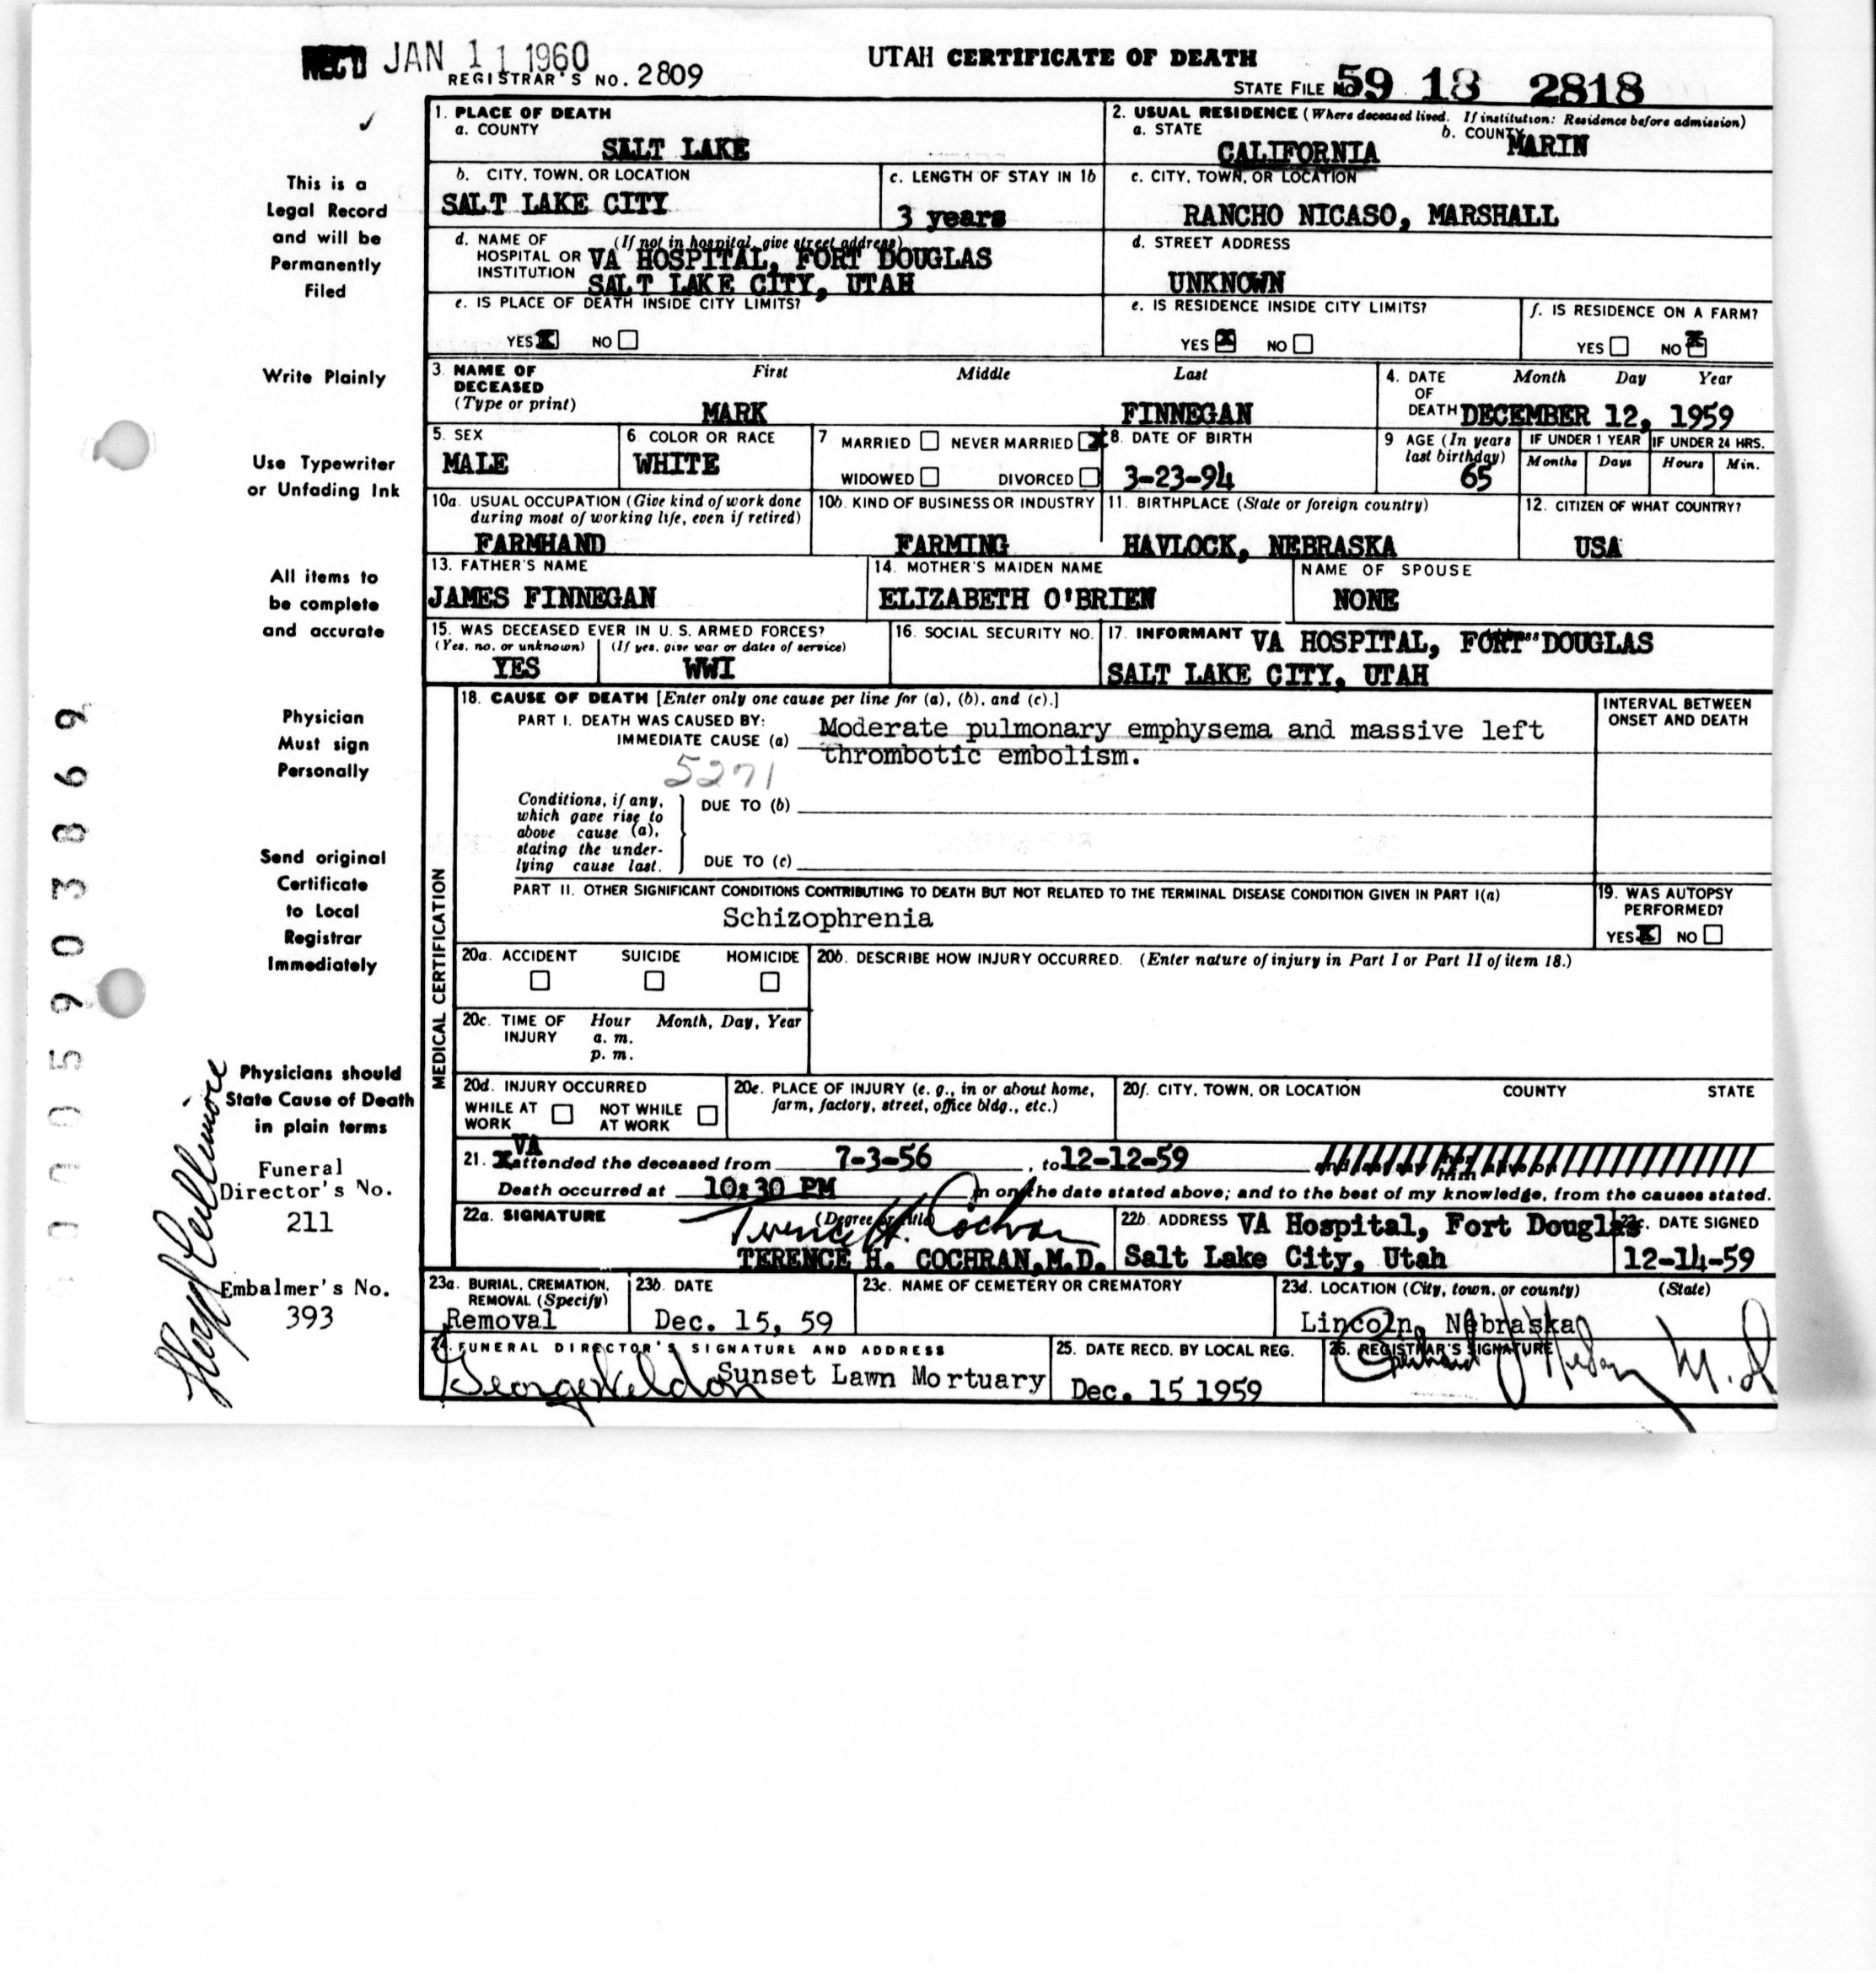 REC'D JAN 11 1960
UTAH CERTIFICATE OF DEATH
REGISTRAR'S NO. 2809
STATE FILE NO. 59 18 2818
This is a
Legal Record
and will be
Permanently
Filed
Write Plainly
Use Typewriter
or Unfading Ink
All items to
be complete
and accurate
Physician
Must sign
Personally
Send original
Certificate
to Local
Registrar
Immediately
Physicians should
State Cause of Death
in plain terms
Funeral
Director's No.
211
Embalmer's No.
393
1. PLACE OF DEATH
a. COUNTY
SALT LAKE
2. USUAL RESIDENCE (Where deceased lived. If institution: Residence before admission)
a. STATE
CALIFORNIA
b. COUNTY
MARIN
b. CITY, TOWN, OR LOCATION
SALT LAKE CITY
c. LENGTH OF STAY IN 1b
3 years
c. CITY, TOWN, OR LOCATION
RANCHO NICASO, MARSHALL
d. NAME OF HOSPITAL OR INSTITUTION (If not in hospital, give street address)
VA HOSPITAL, FORT DOUGLAS
SALT LAKE CITY, UTAH
d. STREET ADDRESS
UNKNOWN
e. IS PLACE OF DEATH INSIDE CITY LIMITS?
YES X NO
e. IS RESIDENCE INSIDE CITY LIMITS?
YES X NO
f. IS RESIDENCE ON A FARM?
YES NO X
3. NAME OF DECEASED (Type or print)
First Middle Last
MARK FINNEGAN
4. DATE OF DEATH
Month Day Year
DECEMBER 12, 1959
5. SEX
MALE
6. COLOR OR RACE
WHITE
7. MARRIED NEVER MARRIED X
WIDOWED DIVORCED
8. DATE OF BIRTH
3-23-94
9 AGE (In years last birthday)
65
IF UNDER 1 YEAR
Months Days
IF UNDER 24 HRS.
Hours Min.
10a. USUAL OCCUPATION (Give kind of work done during most of working life, even if retired)
FARMHAND
10b. KIND OF BUSINESS OR INDUSTRY
FARMING
11. BIRTHPLACE (State or foreign country)
HAVLOCK, NEBRASKA
12. CITIZEN OF WHAT COUNTRY?
USA
13. FATHER'S NAME
JAMES FINNEGAN
14. MOTHER'S MAIDEN NAME
ELIZABETH O'BRIEN
NAME OF SPOUSE
NONE
15. WAS DECEASED EVER IN U. S. ARMED FORCES?
(Yes, no, or unknown) (If yes, give war or dates of service)
YES WWI
16. SOCIAL SECURITY NO.
17. INFORMANT VA HOSPITAL, FORT DOUGLAS
SALT LAKE CITY, UTAH
MEDICAL CERTIFICATION
18. CAUSE OF DEATH [Enter only one cause per line for (a), (b), and (c).]
INTERVAL BETWEEN ONSET AND DEATH
PART I. DEATH WAS CAUSED BY:
IMMEDIATE CAUSE (a) Moderate pulmonary emphysema and massive left
thrombotic embolism.
5271
Conditions, if any, which gave rise to above cause (a), stating the underlying cause last.
DUE TO (b)
DUE TO (c)
PART II. OTHER SIGNIFICANT CONDITIONS CONTRIBUTING TO DEATH BUT NOT RELATED TO THE TERMINAL DISEASE CONDITION GIVEN IN PART I(a)
Schizophrenia
19. WAS AUTOPSY PERFORMED?
YES X NO
20a. ACCIDENT SUICIDE HOMICIDE
20b. DESCRIBE HOW INJURY OCCURRED. (Enter nature of injury in Part I or Part II of item 18.)
20c. TIME OF INJURY Hour Month, Day, Year
a. m.
p. m.
20d. INJURY OCCURRED
WHILE AT WORK NOT WHILE AT WORK
20e. PLACE OF INJURY (e. g., in or about home, farm, factory, street, office bldg., etc.)
20f. CITY, TOWN, OR LOCATION COUNTY STATE
VA
21. X attended the deceased from 7-3-56, to 12-12-59
Death occurred at 10:30 PM m on the date stated above; and to the best of my knowledge, from the causes stated.
22a. SIGNATURE (Degree or title)
Terence H. Cochran
TERENCE H. COCHRAN, M.D.
22b. ADDRESS VA Hospital, Fort Douglas
Salt Lake City, Utah
22c. DATE SIGNED
12-14-59
23a. BURIAL, CREMATION, REMOVAL (Specify)
Removal
23b. DATE
Dec. 15, 59
23c. NAME OF CEMETERY OR CREMATORY
23d. LOCATION (City, town, or county) (State)
Lincoln, Nebraska
24. FUNERAL DIRECTOR'S SIGNATURE AND ADDRESS
Sunset Lawn Mortuary
25. DATE RECD. BY LOCAL REG.
Dec. 15 1959
26. REGISTRAR'S SIGNATURE